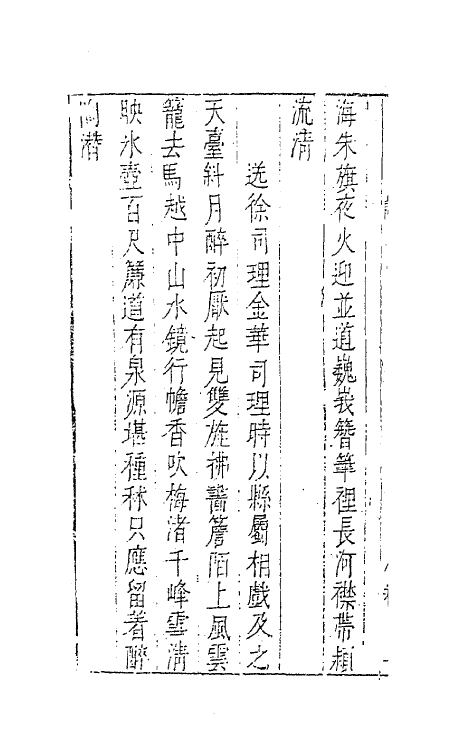 海朱旗夜火迎並道巍峩簪筆裡長河襟帶潁
流清
送徐司理金華司理時以縣屬相戲及之
天臺斜月醉初厭起見雙旌拂曙簷陌上風雲
籠去馬越中山水鏡行幨香吹梅渚千峰雪淸
映氷壺百尺簾道有泉源堪種秫只應留着醉
陶潛